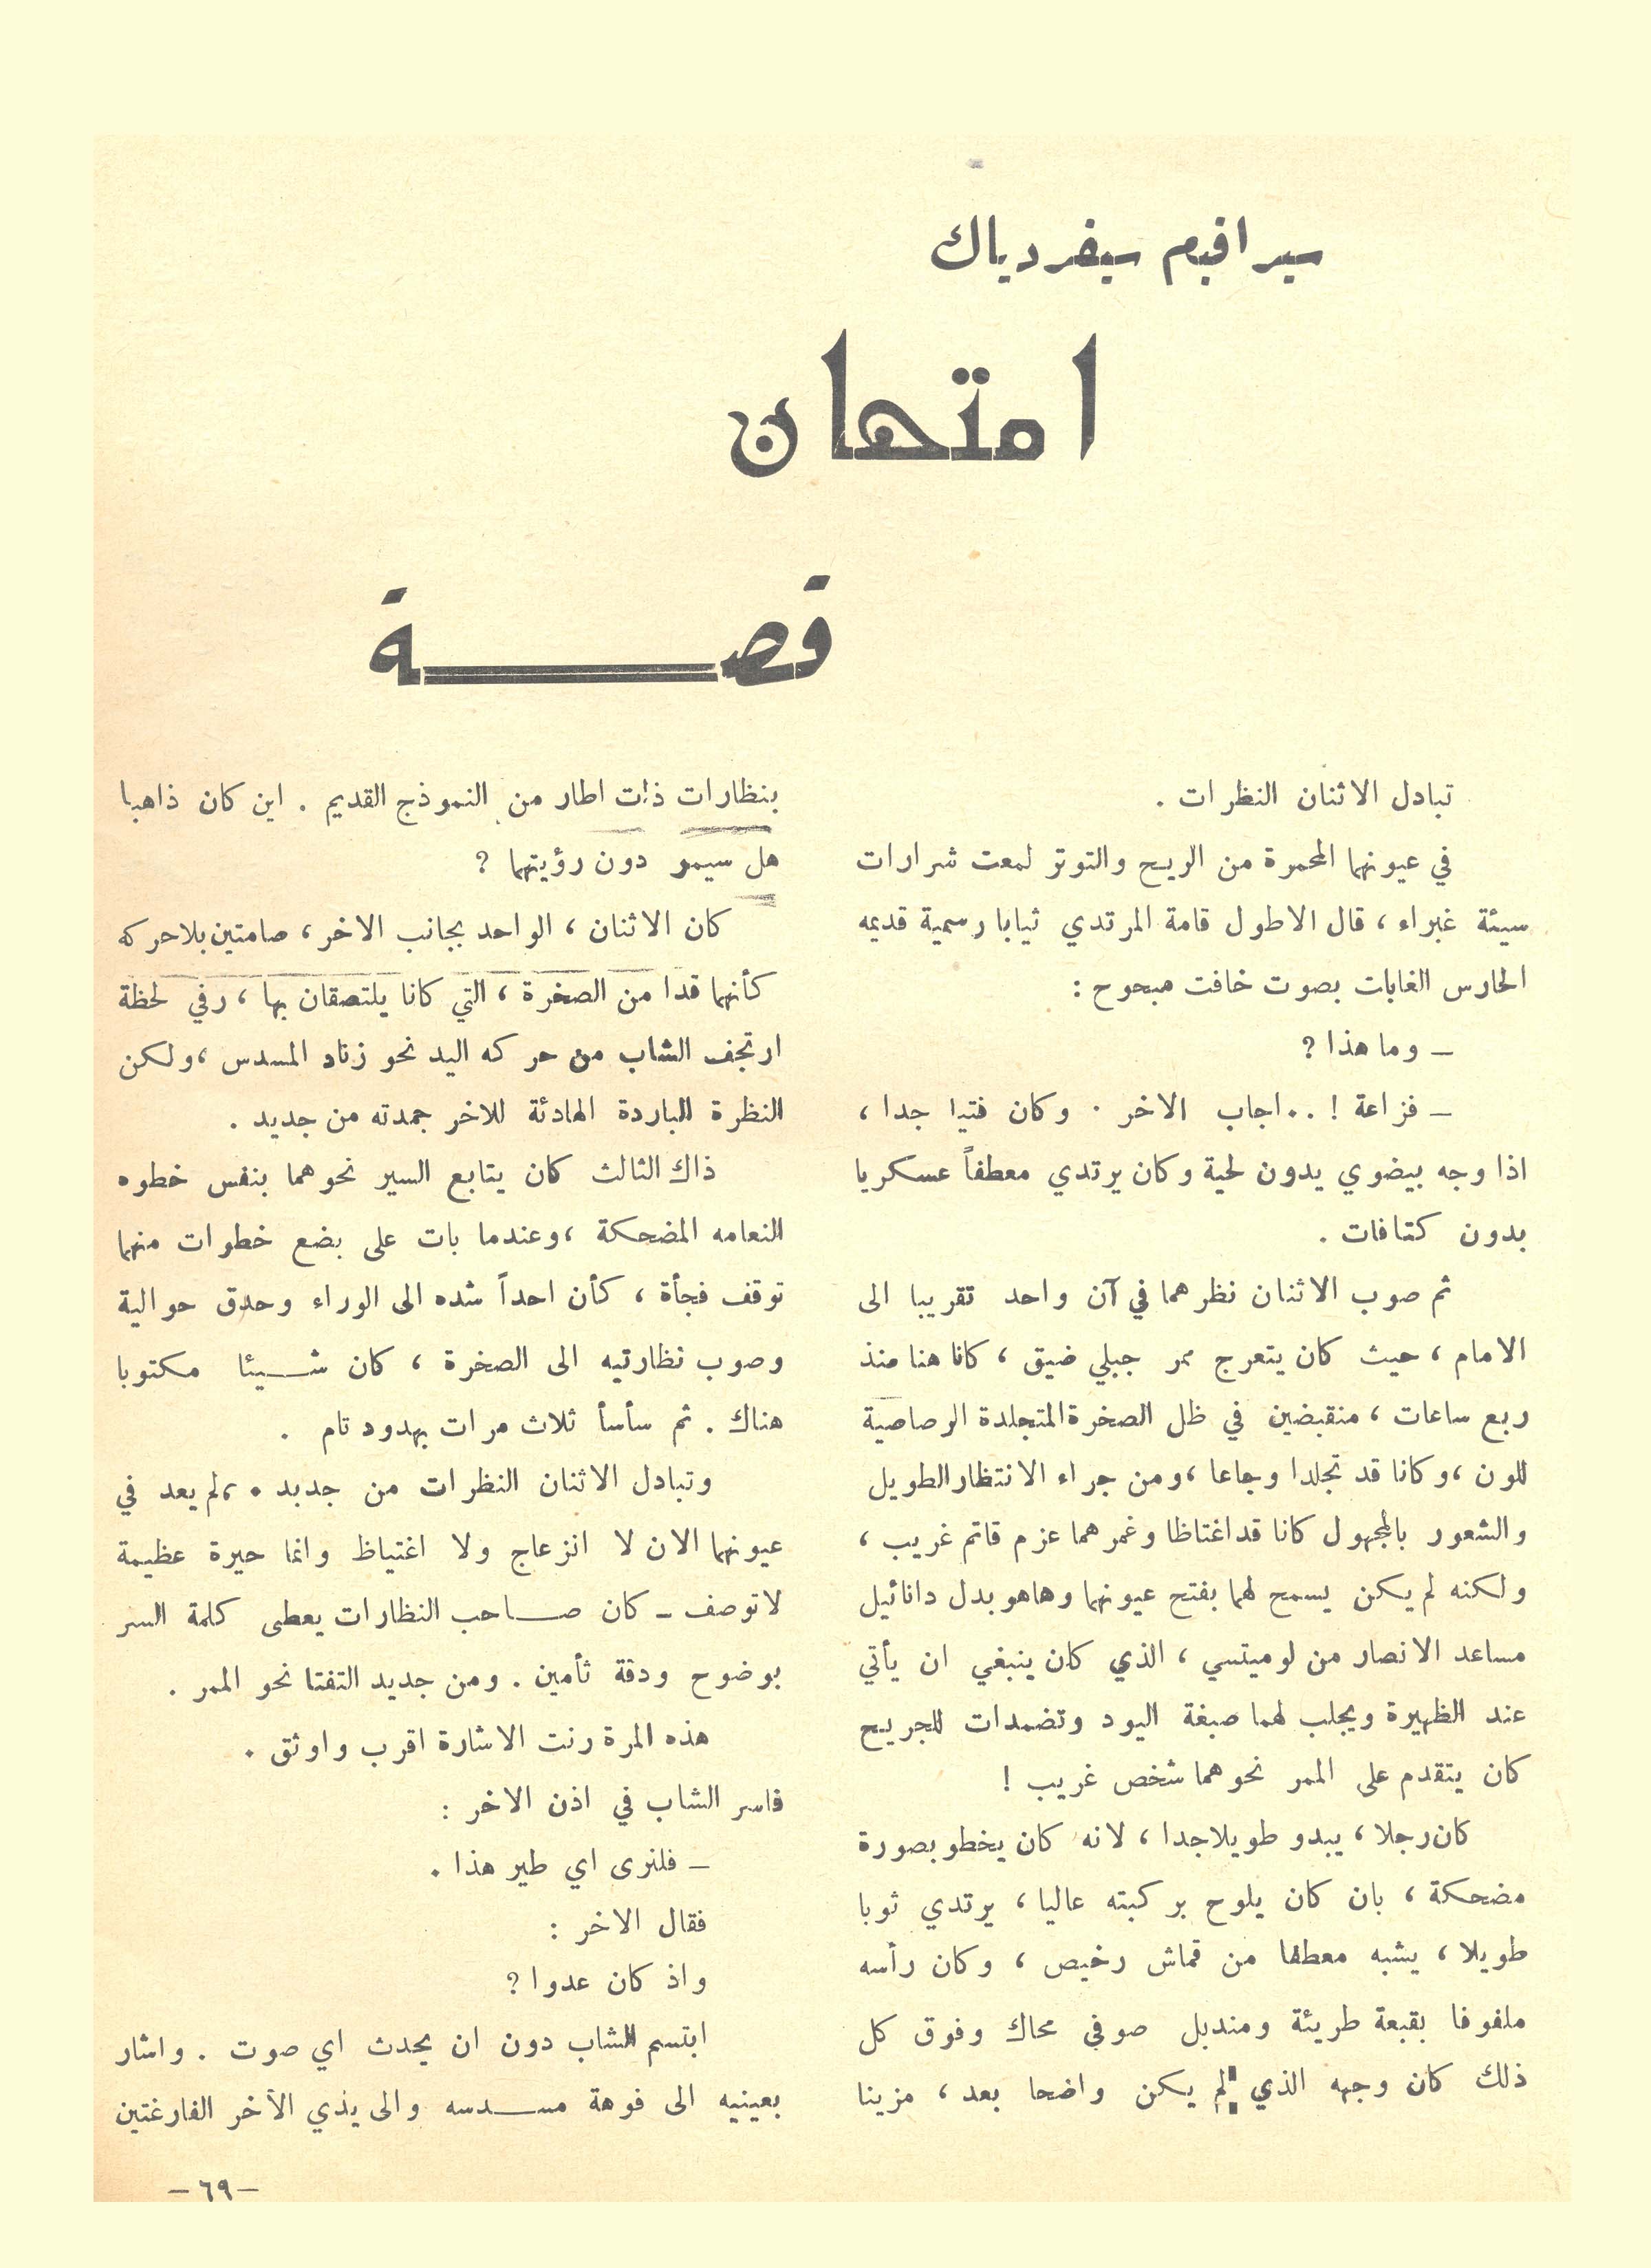 سيرافيم سيفردياك
امتحان
قصة
تبادل الاثنان النظرات .
في عيونهما المحمرة من الريح والتوتر لمعت شرارات
سيئة غبراء ، قال الاطول قامة المرتدي ثيابا رسمية قديمه
الحارس الغابات بصوت خافت مبحوح :
ـ وما هذا ?
ـ فزاعة ! . . اجاب الاخر . وكان فتيا جدا ،
اذا وجه بيضوي يدون لحية وكان يرتدي معطفاً عسكريا
بدون كتافات .
ثم صوب الاثنان نظرهما في آن واحد تقريبا الى
الامام ، حيث كان يتعرج ممر جبلي ضيق ، كانا هنا منذ
ربع ساعات ، منقبضين في ظل الصخرة المتجلدة الرصاصية
للون ، وكانا قد تجلدا وجاعا ، ومن جراء الانتظار الطويل
والشعور بالمجهول كانا قد اغتاظا وغمرهما عزم قاتم غريب ،
ولكنه لم يكن يسمح لهما بفتح عيونهما وهاهو بدل دانائيل
مساعد الانصار من لوميتسي ، الذي كان ينبغي ان يأتي
عند الظهيرة ويجلب لهما صبغة اليود وتضمدات للجريح
كان يتقدم على الممر نحوهما شخص غريب !
كان رجلا ، يبدو طويلا جدا ، لانه كان يخطو بصورة
مضحكة ، بان كان يلوح بركبته عاليا ، يرتدي ثوبا
طويلا ، يشبه معطفا من قماش رخيص ، وكان رأسه
ملفوفا بقبعة طريئة ومنديل صوفي محاك وفوق كل
ذلك كان وجهه الذي لم يكن واضحا بعد ، مزينا
بنظارات ذات اطار من النموذج القديم . اين كان ذاهبا
هل سيمر دون رؤيتهما ?
كان الاثنان ، الواحد بجانب الاخر ، صامتين بلاحركه
كأنهما قدا من الصخرة ، التي كانا يلتصقان بها ، رفي لحظة
ارتجف الشاب من حركه اليد نحو زناد المسدس ، ولكن
النظرة الباردة الهادئة للاخر جمدته من جديد .
ذاك الثالث كان يتابع السير نحوهما بنفس خطوه
النعامه المضحكة ، وعندما بات على بضع خطوات منهما
توقف فجأة ، كأن احداً شده الى الوراء وحدق حوالية
وصوب نظارتيه الى الصخرة ، كان شيئا مكتوبا
هناك . ثم سأسأ ثلاث مرات بهدود تام .
وتبادل الاثنان النظرات من جديد . ، لم يعد في
عيونهما الان لا انزعاج ولا اغتياظ وانما حيرة عظيمة
لاتوصف ـ كان صاحب النظارات يعطى كلمة السر
بوضوح ودقة ثأمين . ومن جديد التفتا نحو الممر .
هذه المرة رنت الاشارة اقرب واوثق .
فاسر الشاب في اذن الاخر :
ـ فلنرى اي طير هذا .
فقال الاخر :
واذ كان عدوا ?
ابتسم الشاب دون ان يحدث اي صوت . واشار
بعينيه الى فوهة مسدسه والى يذي الآخر الفارغتين
ـ ٦٩ ـ